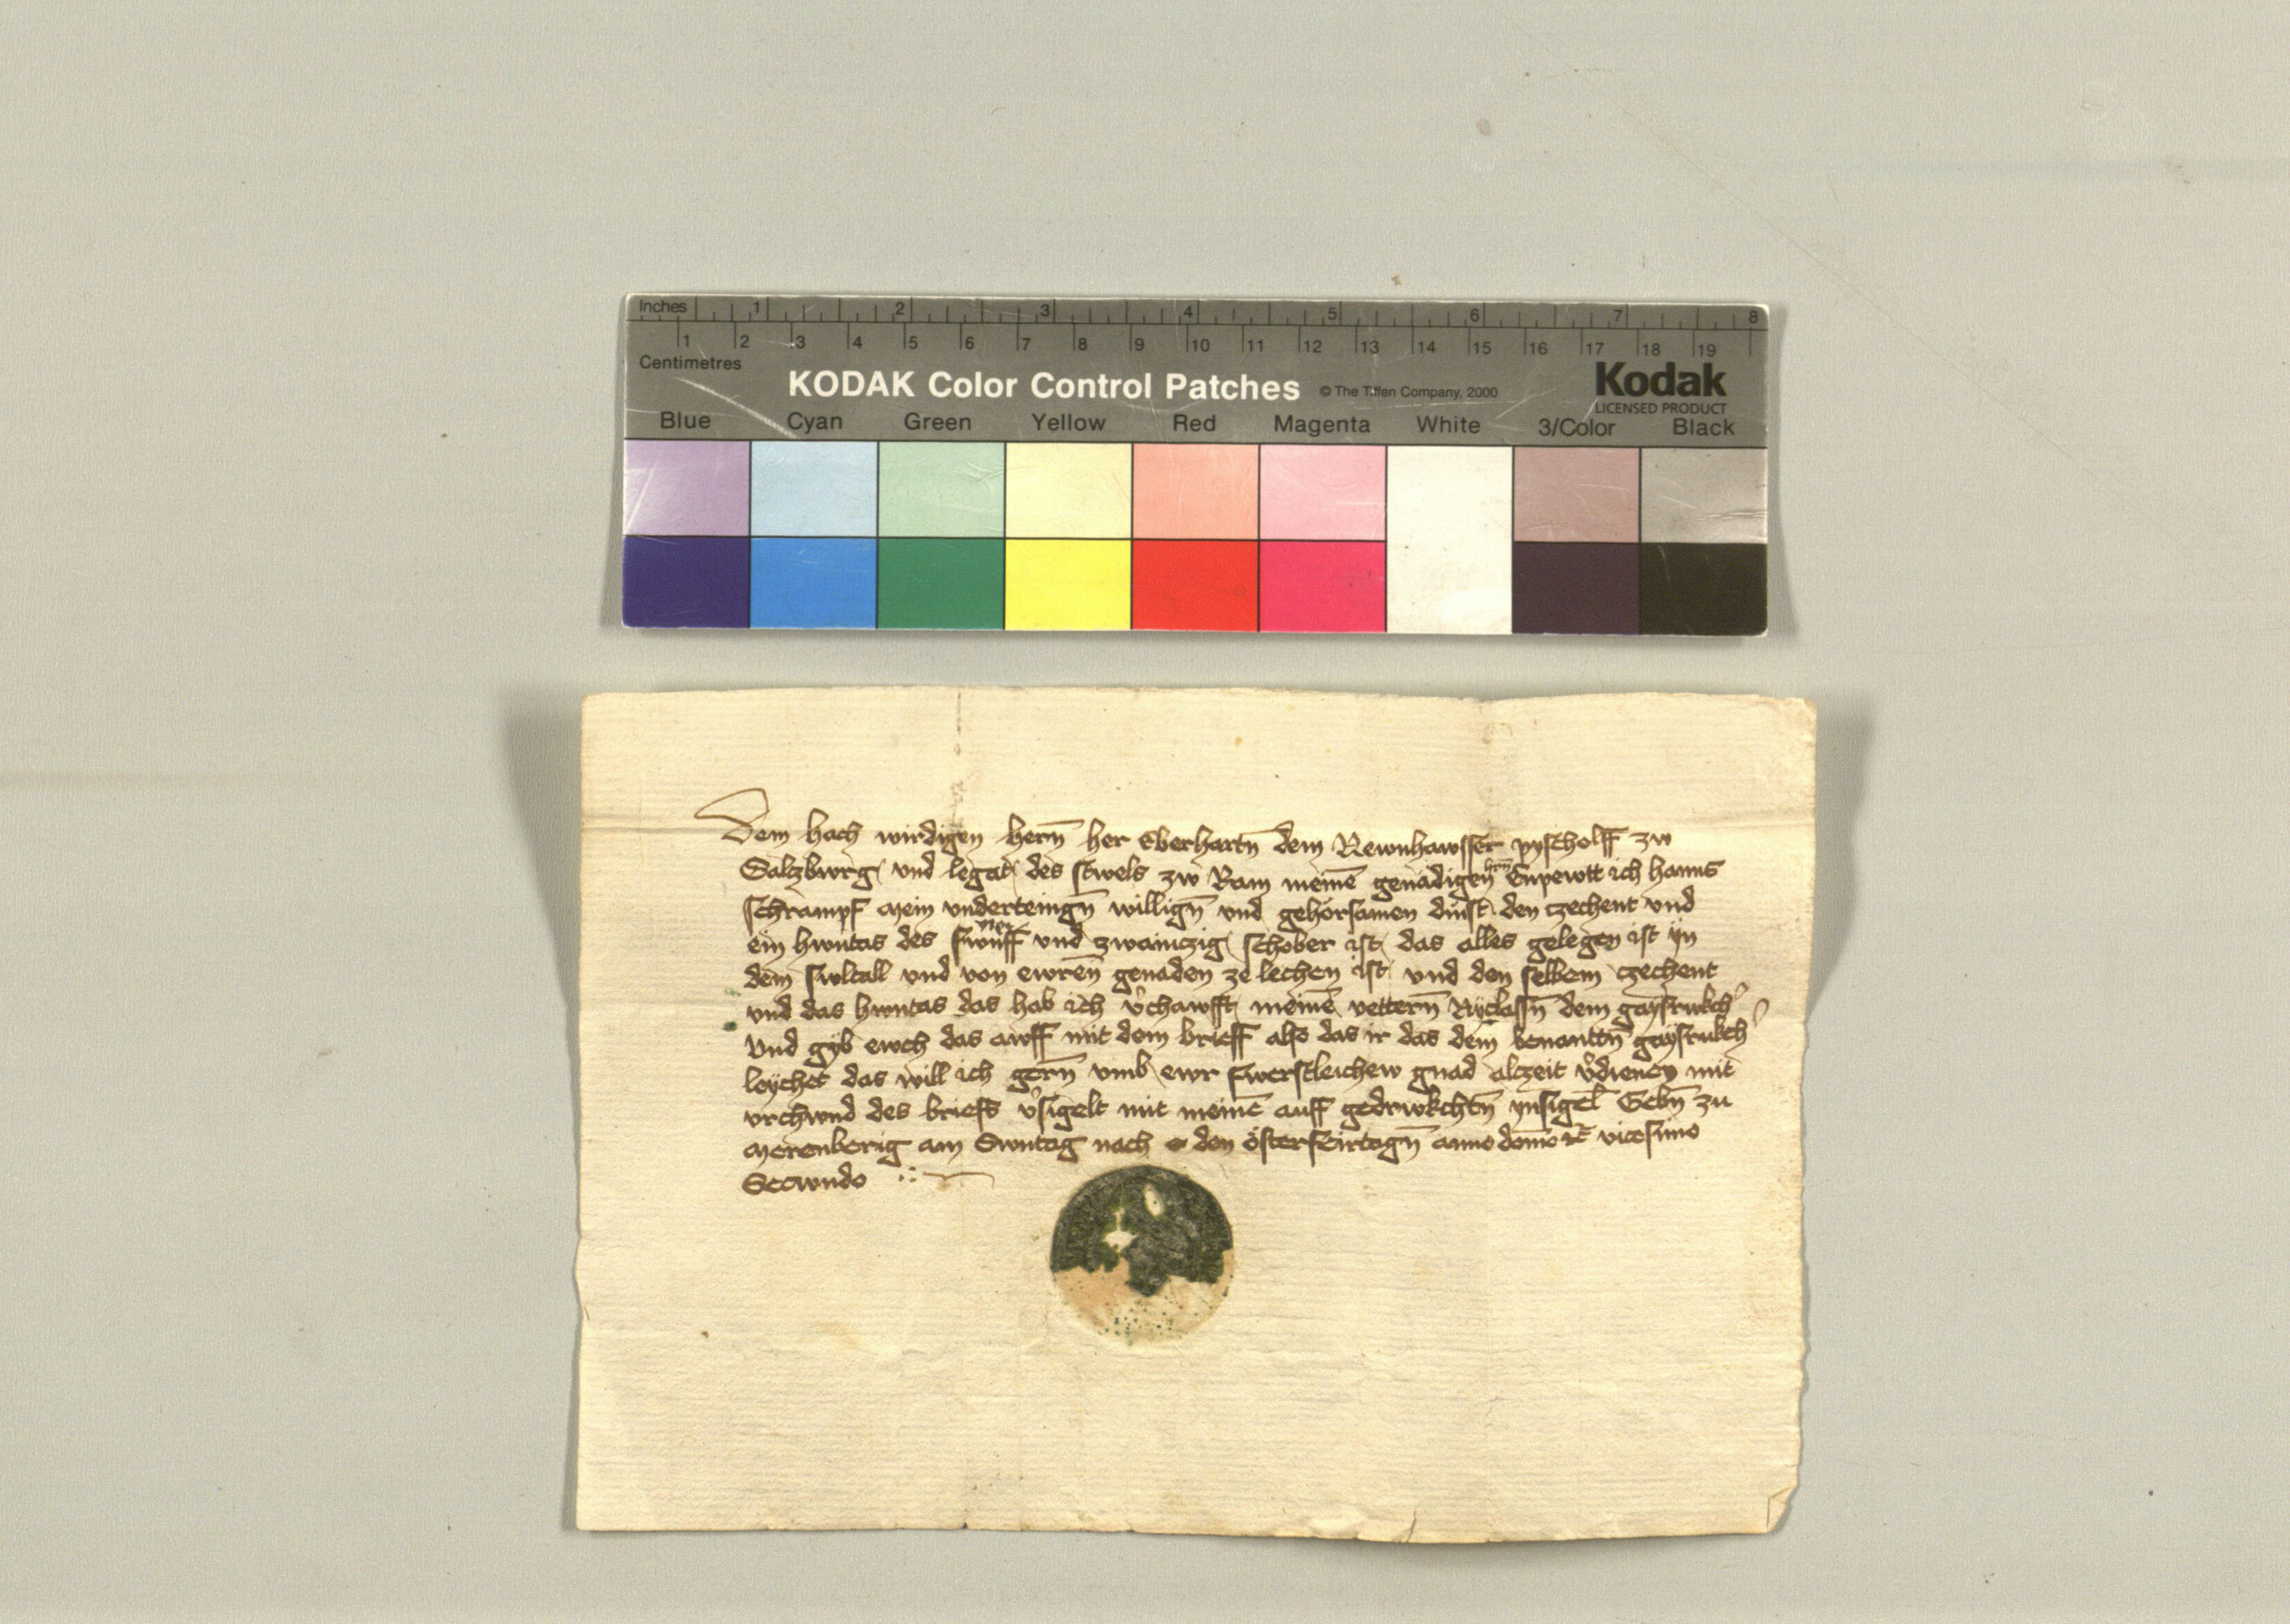 Inches 1 2 3 4 5 6 7 8
1 2 3 4 5 6 7 8 9 10 11 12 13 14 15 16 17 18 19
Centimetres
KODAK Color Control Patches © The Tiffen Company, 2000 Kodak
LICENSED PRODUCT
Blue Cyan Green Yellow Red Magenta White 3/Color Black
Dem hach wirdigen hern̄ her Eberhartn̄ dem Newnhawsser pyscholff zw
Salzbwrg und legat des stwels zw Ram meinē genädigen hrn̄ Enpewtt ich hanns
schrampf mein underteingn̄ willign̄ und gehörsamen dinst den czechent und
ein hwntas des fwnff vier und zwainczig schober ist das alles gelegen ist yn
dem swltall und von ewren̄ genaden ze lechen ist und den selbem czechent
und das hwntas das hab ich v̄chawfft meinē vettern̄ Nyclassn̄ dem gaysrukch
Und gyb ewch das awff mit dem brieff also das ir das dem benanttn̄ gaysrukch
leychet das will ich gern̄ umb ewr fwerstleichew gnad alczeit v̄dienen mit
urchwnd des briefs v̄sigelt mit meinē auff gedrwkchtn̄ ynsigel Gebn̄ zu
merenberig am Swntag nach den österfeirtagn̄ anno domō rc̄ vicesimo
Secwndo